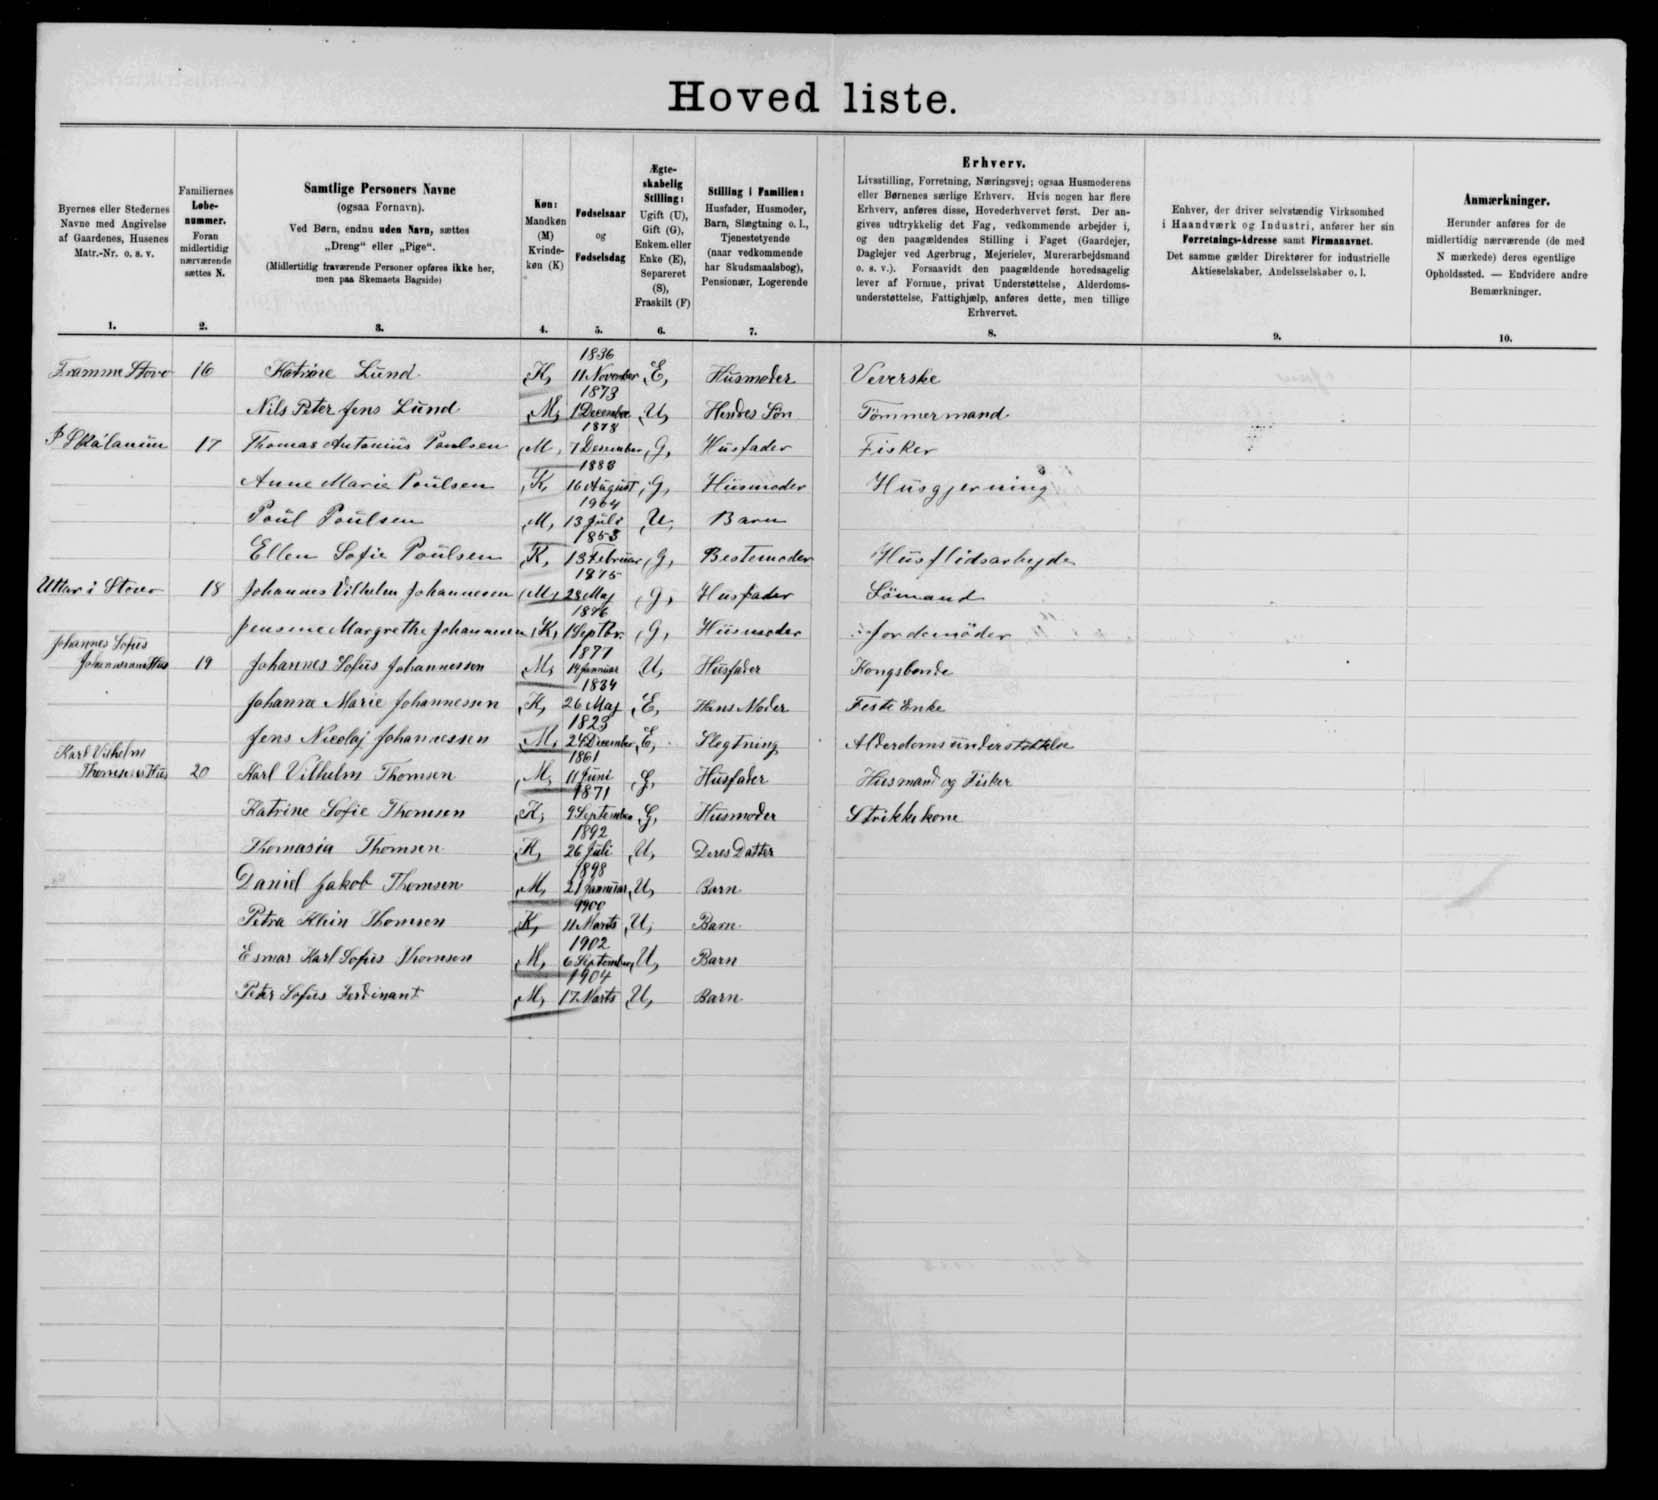 Hoved liste.
Byernes eller Stedernes
Navne med Angivelse
af Gaardenes, Husenes
Matr.-Nr. o. s. v.
1.
Familiernes
Løbe-
nummer.
Foran
midlertidig
nærværende
sættes N.
2.
Samtlige Personers Navne
(ogsaa Fornavn).
Ved Børn, endnu uden Navn, sættes
„Dreng“ eller „Pige“.
(Midlertidig fraværende Personer opføres ikke her,
men paa Skemaets Bagside)
3.
Køn:
Mandkøn
(M)
Kvinde-
køn (K)
4.
Fødselsaar
og
Fødselsdag
5.
Ægte-
skabelig
Stilling:
Ugift (U),
Gift (G),
Enkem. eller
Enke (E),
Separeret
(S),
Fraskilt (F)
6.
Stilling i Familien:
Husfader, Husmoder,
Barn, Slægtning o. l.,
Tjenestetyende
(naar vedkommende
har Skudsmaalsbog),
Pensionær, Logerende
7.
Erhverv.
Livsstilling, Forretning, Næringsvej; ogsaa Husmoderens
eller Børnenes særlige Erhverv. Hvis nogen har flere
Erhverv, anføres disse, Hovederhvervet først. Der an-
gives udtrykkelig det Fag, vedkommende arbejder i,
og den paagældendes Stilling i Faget (Gaardejer,
Daglejer ved Agerbrug, Mejerielev, Murerarbejdsmand
o. s. v.). Forsaavidt den paagældende hovedsagelig
lever af Formue, privat Understøttelse, Alderdoms-
understøttelse, Fattighjælp, anføres dette, men tillige
Erhvervet.
8.
Enhver, der driver selvstændig Virksomhed
i Haandværk og Industri, anfører her sin
Forretnings-Adresse samt Firmanavnet.
Det samme gælder Direktører for industrielle
Aktieselskaber, Andelsselskaber o. l.
9.
Anmærkninger.
Herunder anføres for de
midlertidig nærværende (de med
N mærkede) deres egentlige
Opholdssted. — Endvidere andre
Bemærkninger.
10.
Framme Stove 16 Katrine Lund K, 1836 11 November E, Husmoder Veverske
Nils Peter Jens Lund M, 1873 1 December U, Hendes Søn Tömmermand
17 Thomas Antonius Poulsen M, 1878 7 Desember G, Husfader Fisker
Anne Marie Poulsen K, 1883 16 August G, Husmoder Husgjerning
Poul Poulsen M, 1904 13 Juli U, Barn
Ellen Sofie Poulsen K, 1853 13 Februar G, Bestemoder Husflidsarbejde
18 Johannes Vilhelm Johannesen M, 1875 28 Maj G, Husfader Sömand
Jensine Margrethe Johannesen K, 1876 1 Septbr. G, Husmoder Jordemöder
Johannes Sofus
Johannesens Hus 19 Johannes Sofus Johannessen M, 1877 14 Januar U, Husfader Kongsbonde
Johanne Marie Johannessen K, 1834 26 Maj E, Hans Moder Feste Enke
Jens Nicolaj Johannessen M, 1823 24 December E, Slegtning Alderdomsunderstøttelse
Karl Vilhelm
Thomsens Hus 20 Karl Vilhelm Thomsen M, 1861 11 Juni G, Husfader Husmand og Fisker
Katrine Sofie Thomsen K, 1871 9 September G, Husmoder Strikkekone
Thomasia Thomsen K, 1892 26 Juli U, Deres Datter
Daniel Jakob Thomsen M, 1898 21 Januar U, Barn
Petra Thomsen K, 1900 11 Marts U, Barn
Esmar Karl Sofus Thomsen M, 1902 6 September U, Barn
Peter Sofus Ferdinant M, 1904 17 Marts U, Barn